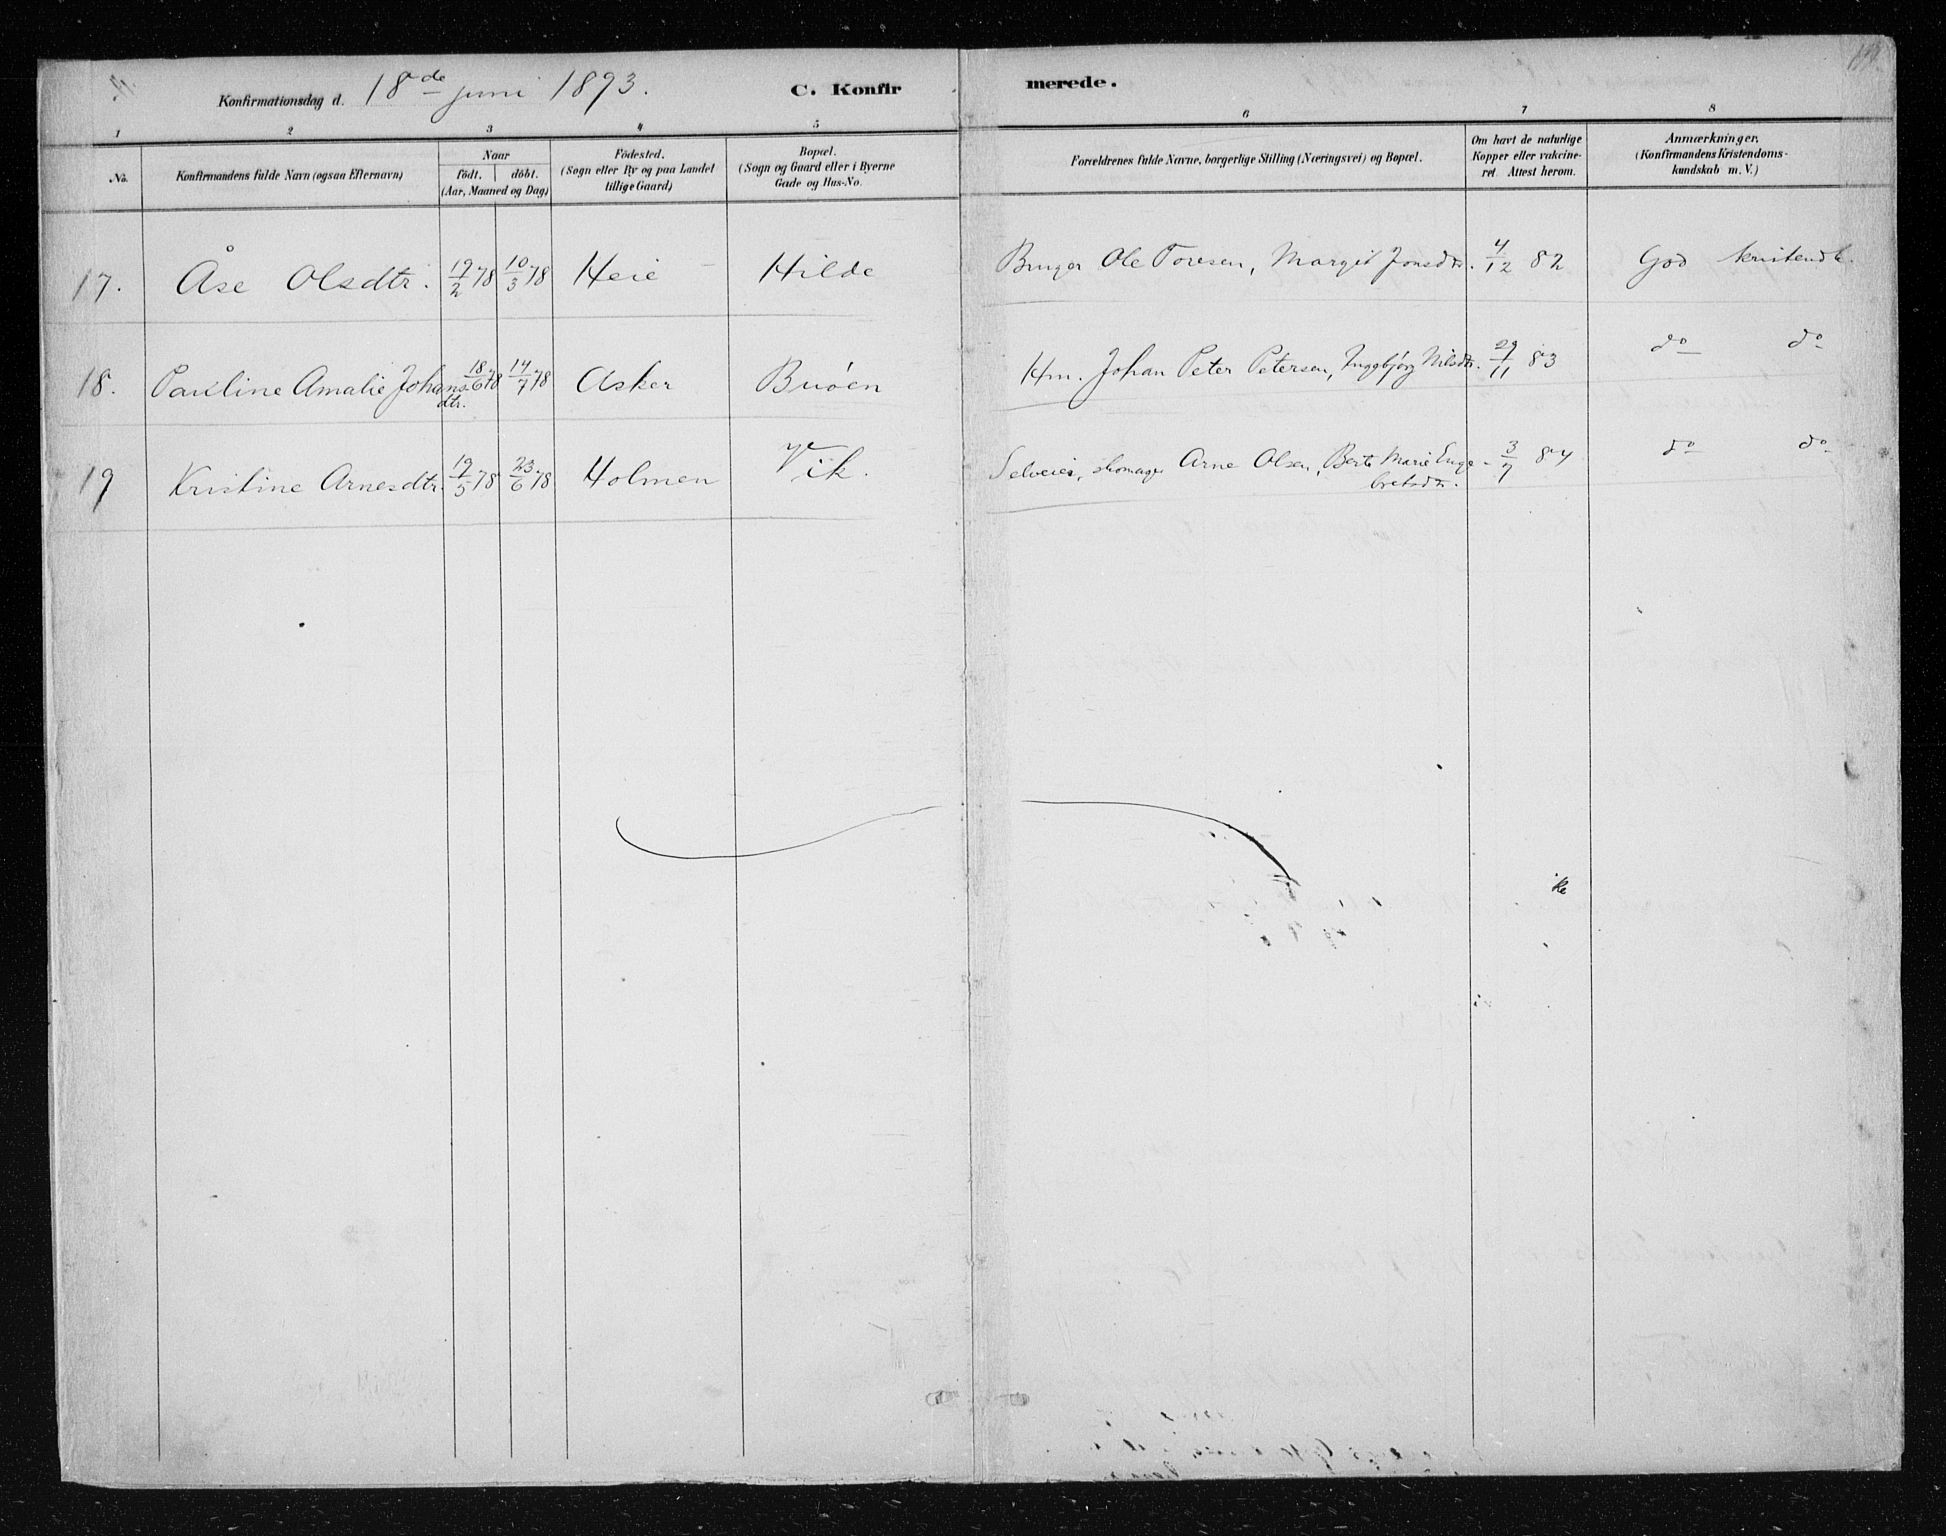 Konfirmationsdag d. 18de juni 1893. C. Konfir merede.
1 2 3 4 5 6 7 8
No. Konfirmandens fulde Navn (ogsaa Efternavn) Naar født. døbt. (Aar, Maaned og Dag) Fødested. (Sogn eller By og paa Landet tillige Gaard) Bopæl. (Sogn og Gaard eller i Byerne Gade og Hus-No. Forældrenes fulde Navne, borgerlige Stilling (Næringsvei) og Bopæl. Om havt de naturlige Kopper eller vakcineret. Attest herom. Anmærkninger. (Konfirmandens Kristendomskundskab m. V.)
17. Åse Olsdtr. 19/2 78 10/3 78 Heie Hilde Bruger Ole Toresen, Margit Jonsdtr. 4/12 82 God kristendk.
18. Pauline Amalie Johansdtr. 18/6 78 14/7 78 Asker Buøen Hm. Johan Peter Petersen, Inggbjørg Nilsdtr. 29/11 83 do do
19 Kristine Arnesdtr. 19/5 78 23/6 78 Holmen Vik. Selveier, skomager Arne Olsen, Berte Marie Engebretsdtr. 3/7 84 do do